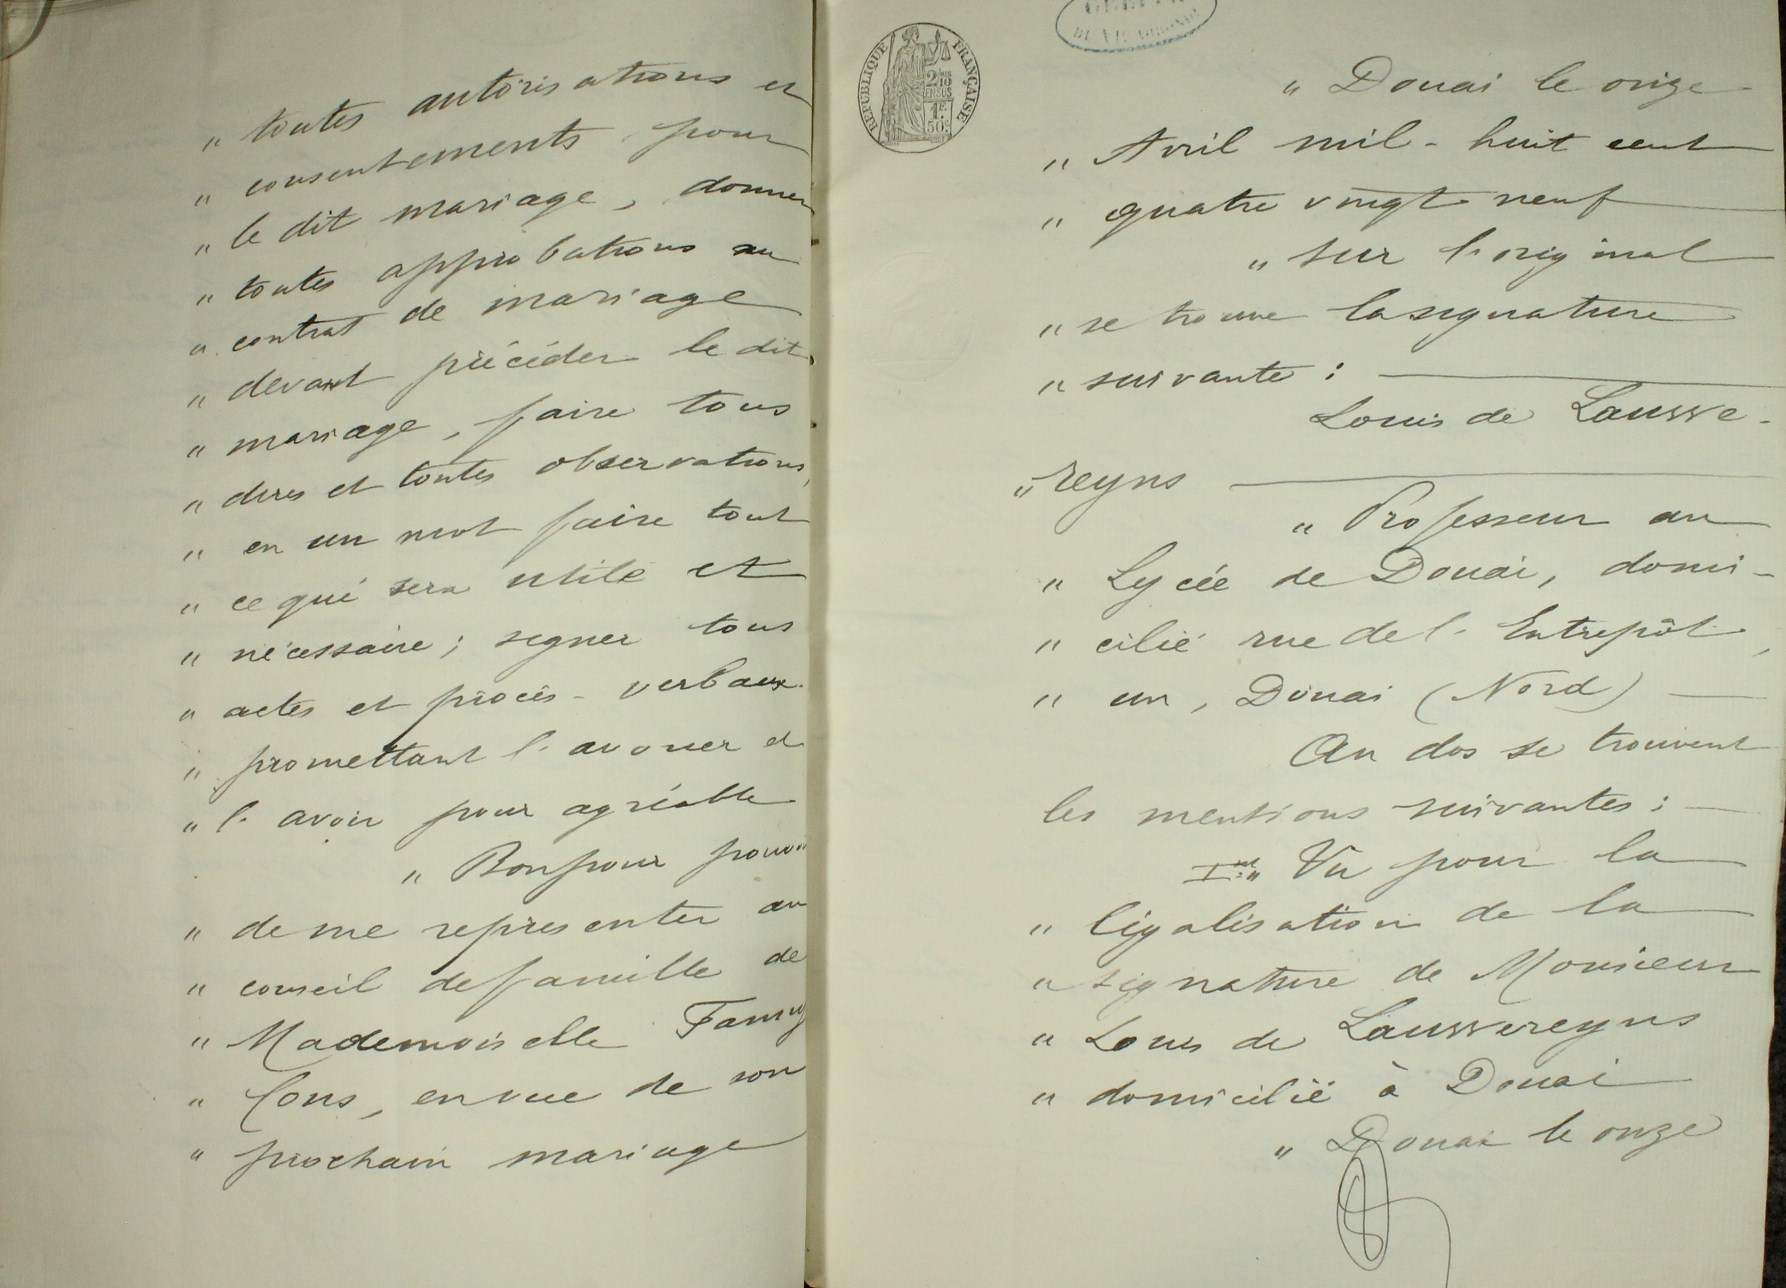 " toutes autorisations et
" consentements pour
" le dit mariage, donner
" toutes approbations au
" contrat de mariage
" devant précéder le dit
" mariage, faire tous
" dires et toutes observations,
" en un mot faire tout
" ce qui sera utile et
" nécessaire; signer tous
" actes et procès-verbaux
" promettant l'avouer et
" l'avoir pour agréable
" Bon pour pouvoir
" de me représenter au
" conseil de famille de
" Mademoiselle Fanny
" Cons, en vue de son
" prochain mariage
RÉPUBLIQUE FRANÇAISE
2/10 EN SUS
1F 50c
" Douai le onze
" Avril mil-huit cent
" quatre vingt neuf
" sur l'original
" se trouve la signature
" suivante :
Louis de Lausse-
" reyns
" Professeur au
" Lycée de Douai, domi-
" cilié rue de l'Entrepôt,
" un, Douai (Nord)
Au dos se trouvent
les mentions suivantes :
I° " Vu pour la
" légalisation de la
" signature de Monsieur
" Louis de Laussereyns
" domicilié à Douai
" Douai le onze